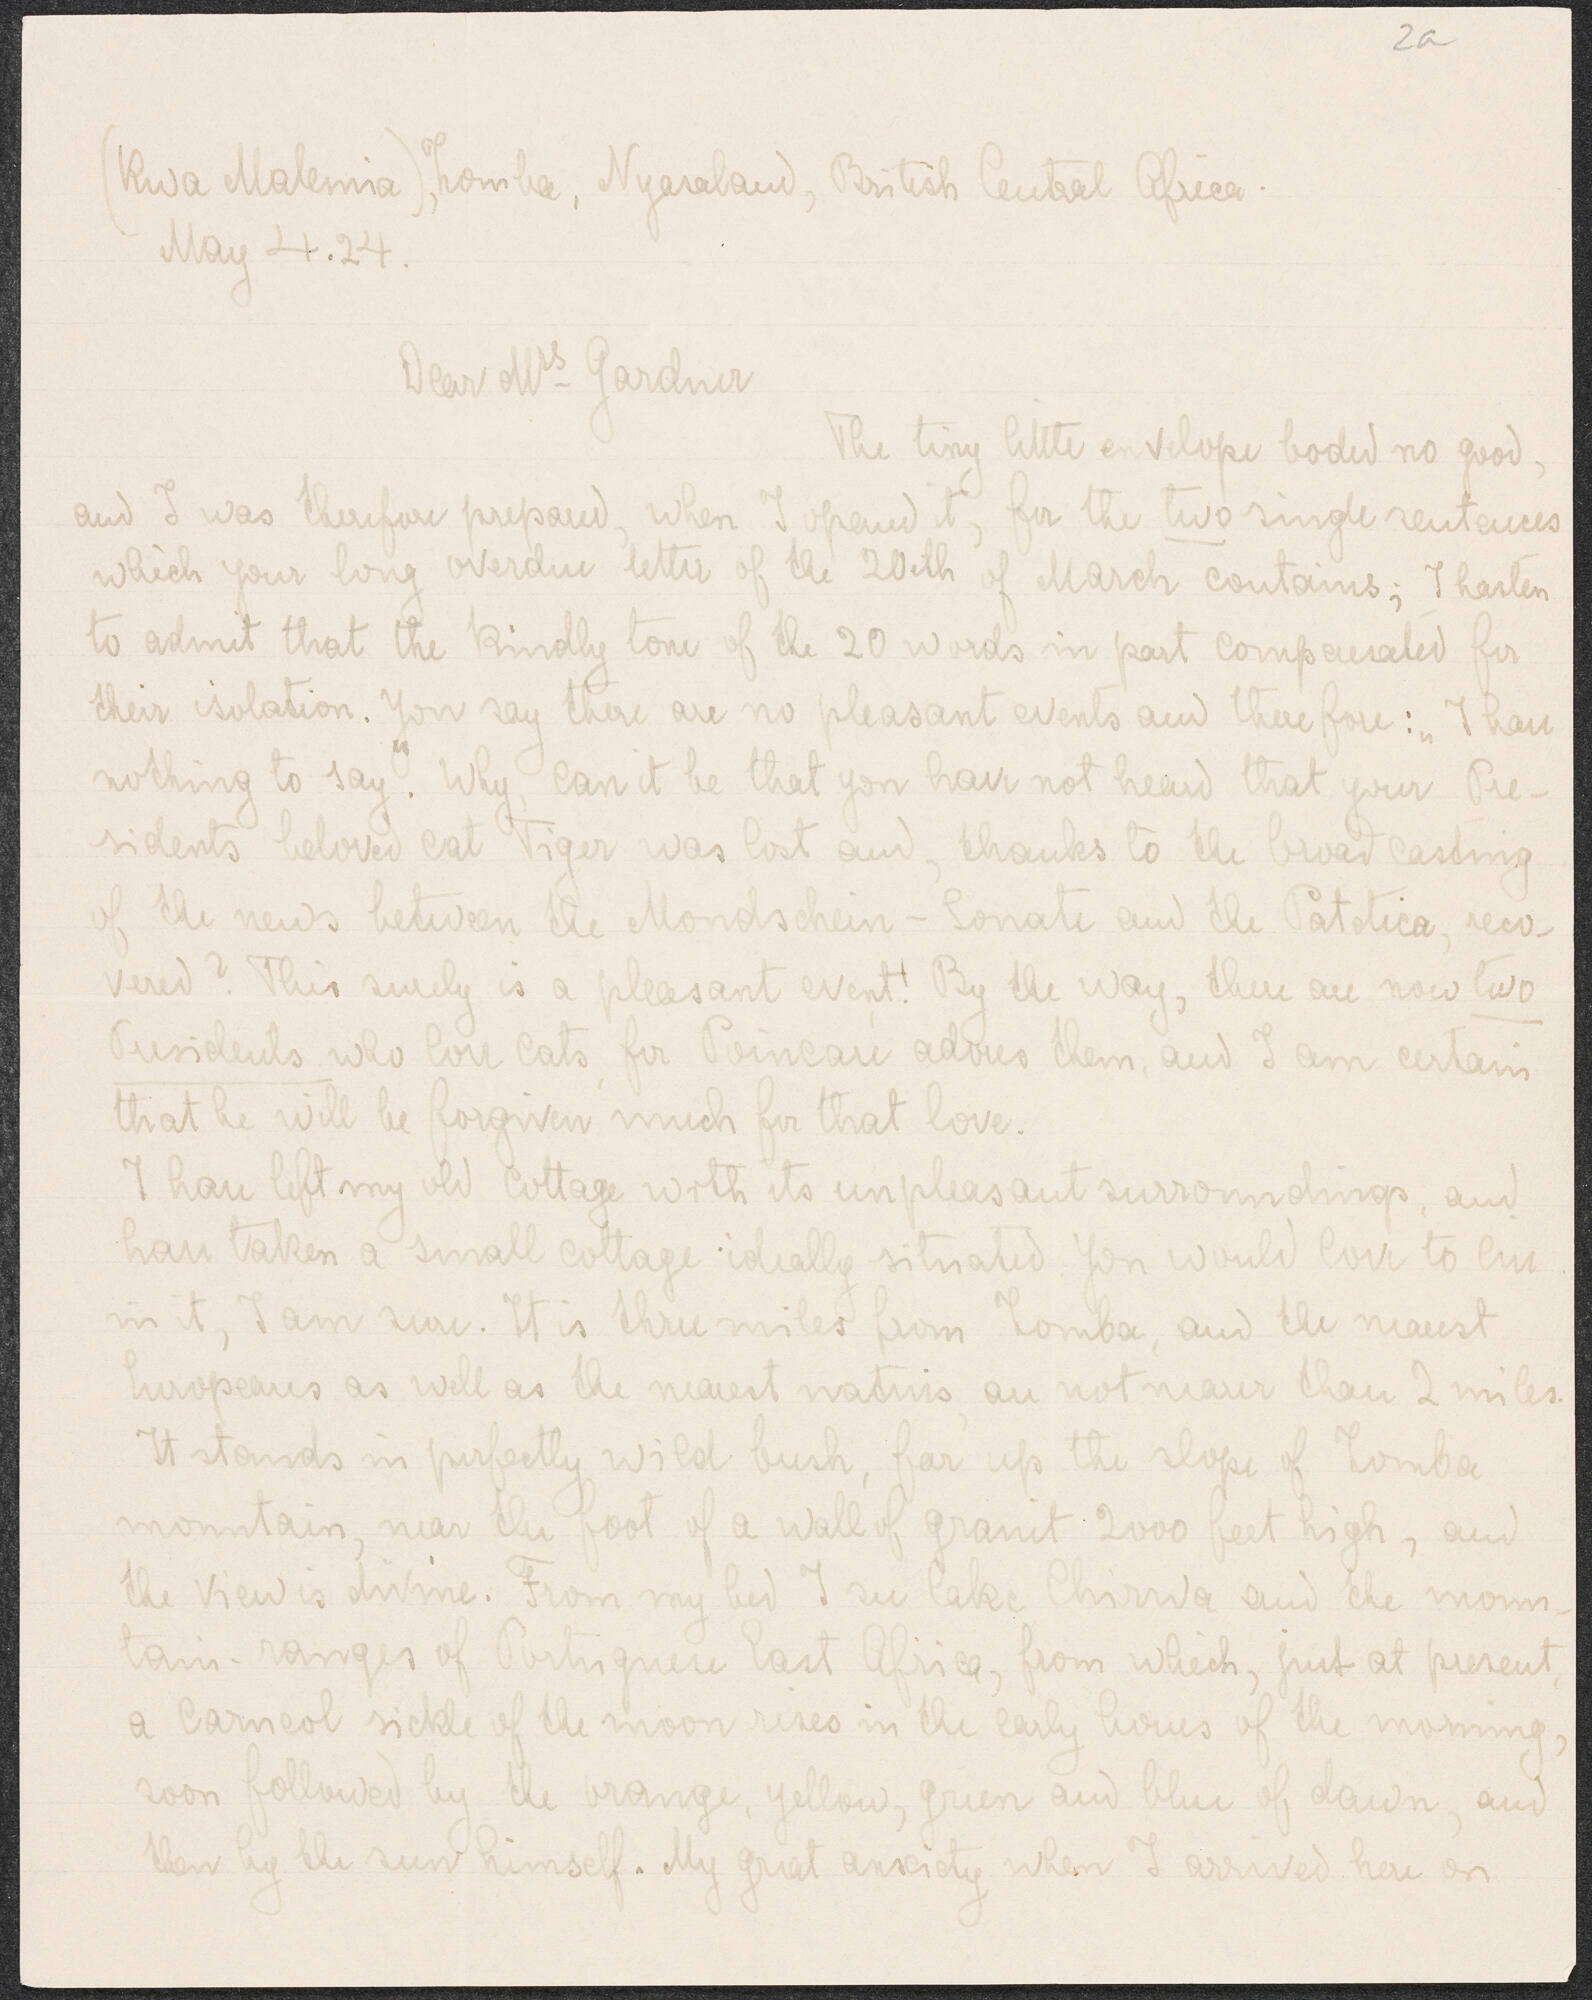 2a
(Kwa Malemia), Zomba, Nyasaland, British Central Africa.
May 4.24.
Dear Mrs Gardner
The tiny little envelope boded no good,
and I was therefore prepared, when I opened it, for the two single sentences
which your long overdue letter of the 20th of March contains; I hasten
to admit that the kindly tone of the 20 words in part compensated for
their isolation. You say there are no pleasant events and therefore: „I have
nothing to say". Why, can it be that you have not heard that your Pre-
sidents beloved cat Tiger was lost and, thanks to the broadcasting
of the news between the Mondschein-Sonate and the Patetica, reco-
vered? This surely is a pleasant event! By the way, there are now two
Presidents who love cats, for Poincaré adores them, and I am certain
that he will be forgiven much for that love.
I have left my old cottage with its unpleasant surroundings, and
have taken a small cottage ideally situated. You would love to live
in it, I am sure. It is three miles from Zomba, and the nearest
Europeans as well as the nearest natives, are not nearer than 2 miles.
It stands in perfectly wild bush, far up the slope of Zomba
mountain, near the foot of a wall of granit 2000 feet high, and
the view is divine. From my bed I see Lake Chirwa and the moun-
tain-ranges of Portuguese East Africa, from which, just at present,
a carneol sickle of the moon rises in the early hours of the morning,
soon followed by the orange, yellow, green and blue of dawn, and
then by the sun himself. My great anxiety when I arrived here on